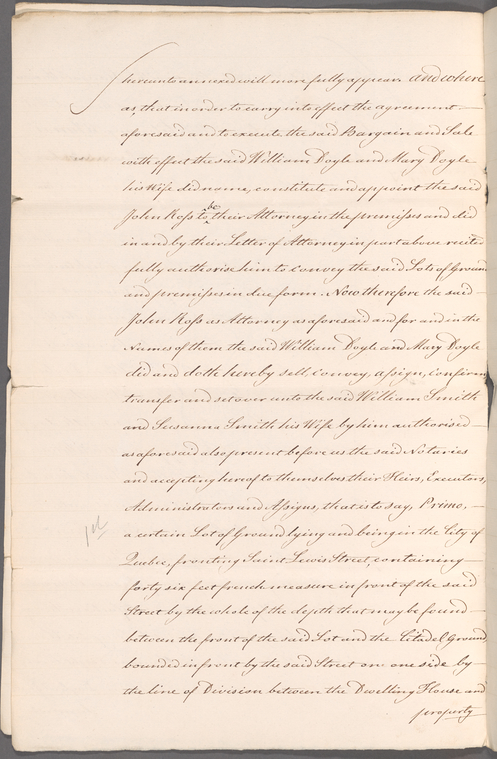 hereunto annexed will more fully appear. And where
as, that in order to carry into effect the agreement
aforesaid and to execute the said Bargain and Sale
with effect the said William Doyle and Mary Doyle
his Wife did name, constitute and appoint the said
John Ross to be their Attorney in the premisses and did
in and by their Letter of Attorney in part above recited
fully authorise him to convey the said Lots of Ground
and premisses in due form. Now therefore the said
John Ross as Attorney as aforesaid and for and in the
Names of them the said William Doyle and Mary Doyle
did and doth hereby sell, convey, assign, confirm
transfer and set over unto the said William Smith
and Susanna Smith his Wife by him authorised
as aforesaid also present before us the said Notaries
and accepting hereof to themselves their Heirs, Executors,
Administrators and Assigns, that is to say, Primo,
1st
a certain Lot of Ground lying and being in the City of
Quebec, fronting Saint Lewis Street, containing
forty six feet french measure in front of the said
Street by the whole of the depth that may be found
between the front of the said Lot and the Citadel Ground
bounded in front by the said Street on one side by
the line of Division between the Dwelling House and
property